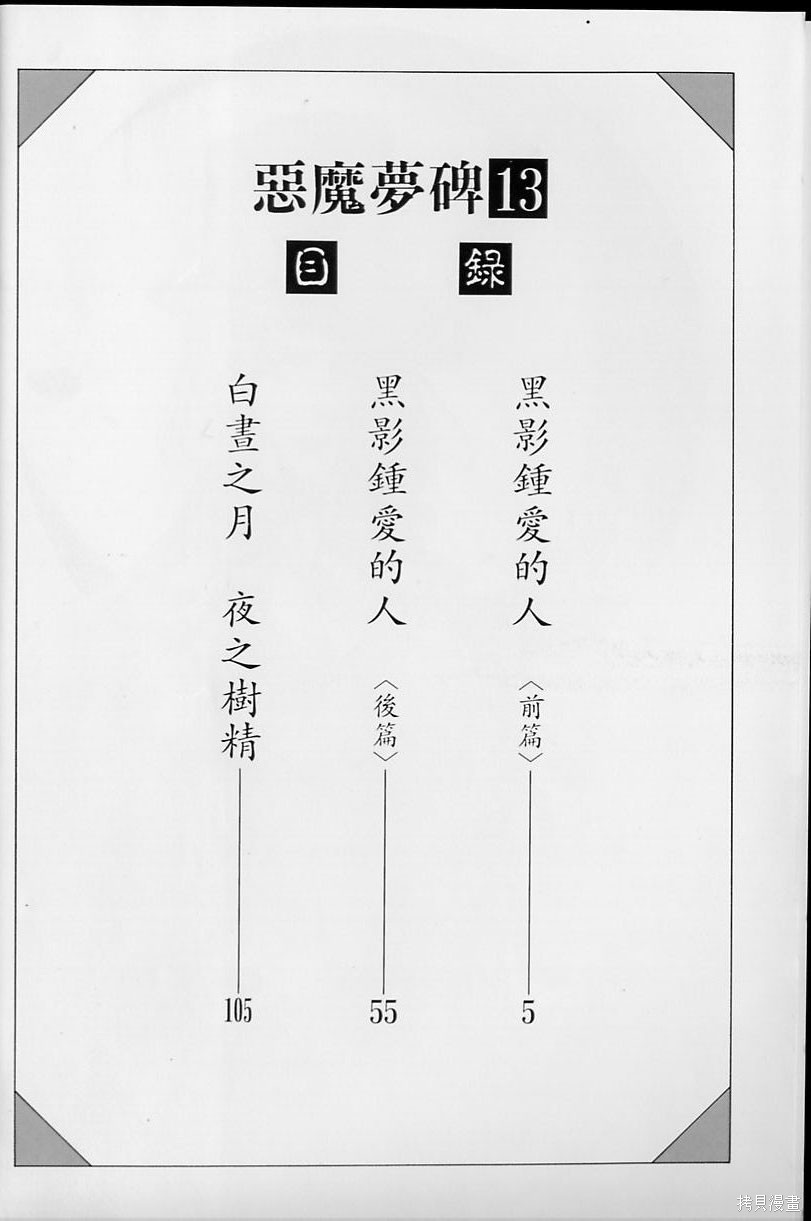 惡魔夢碑13
目錄
黑影鍾愛的人〈前篇〉5
黑影鍾愛的人〈後篇〉55
白晝之月 夜之樹精105
拷貝漫畫